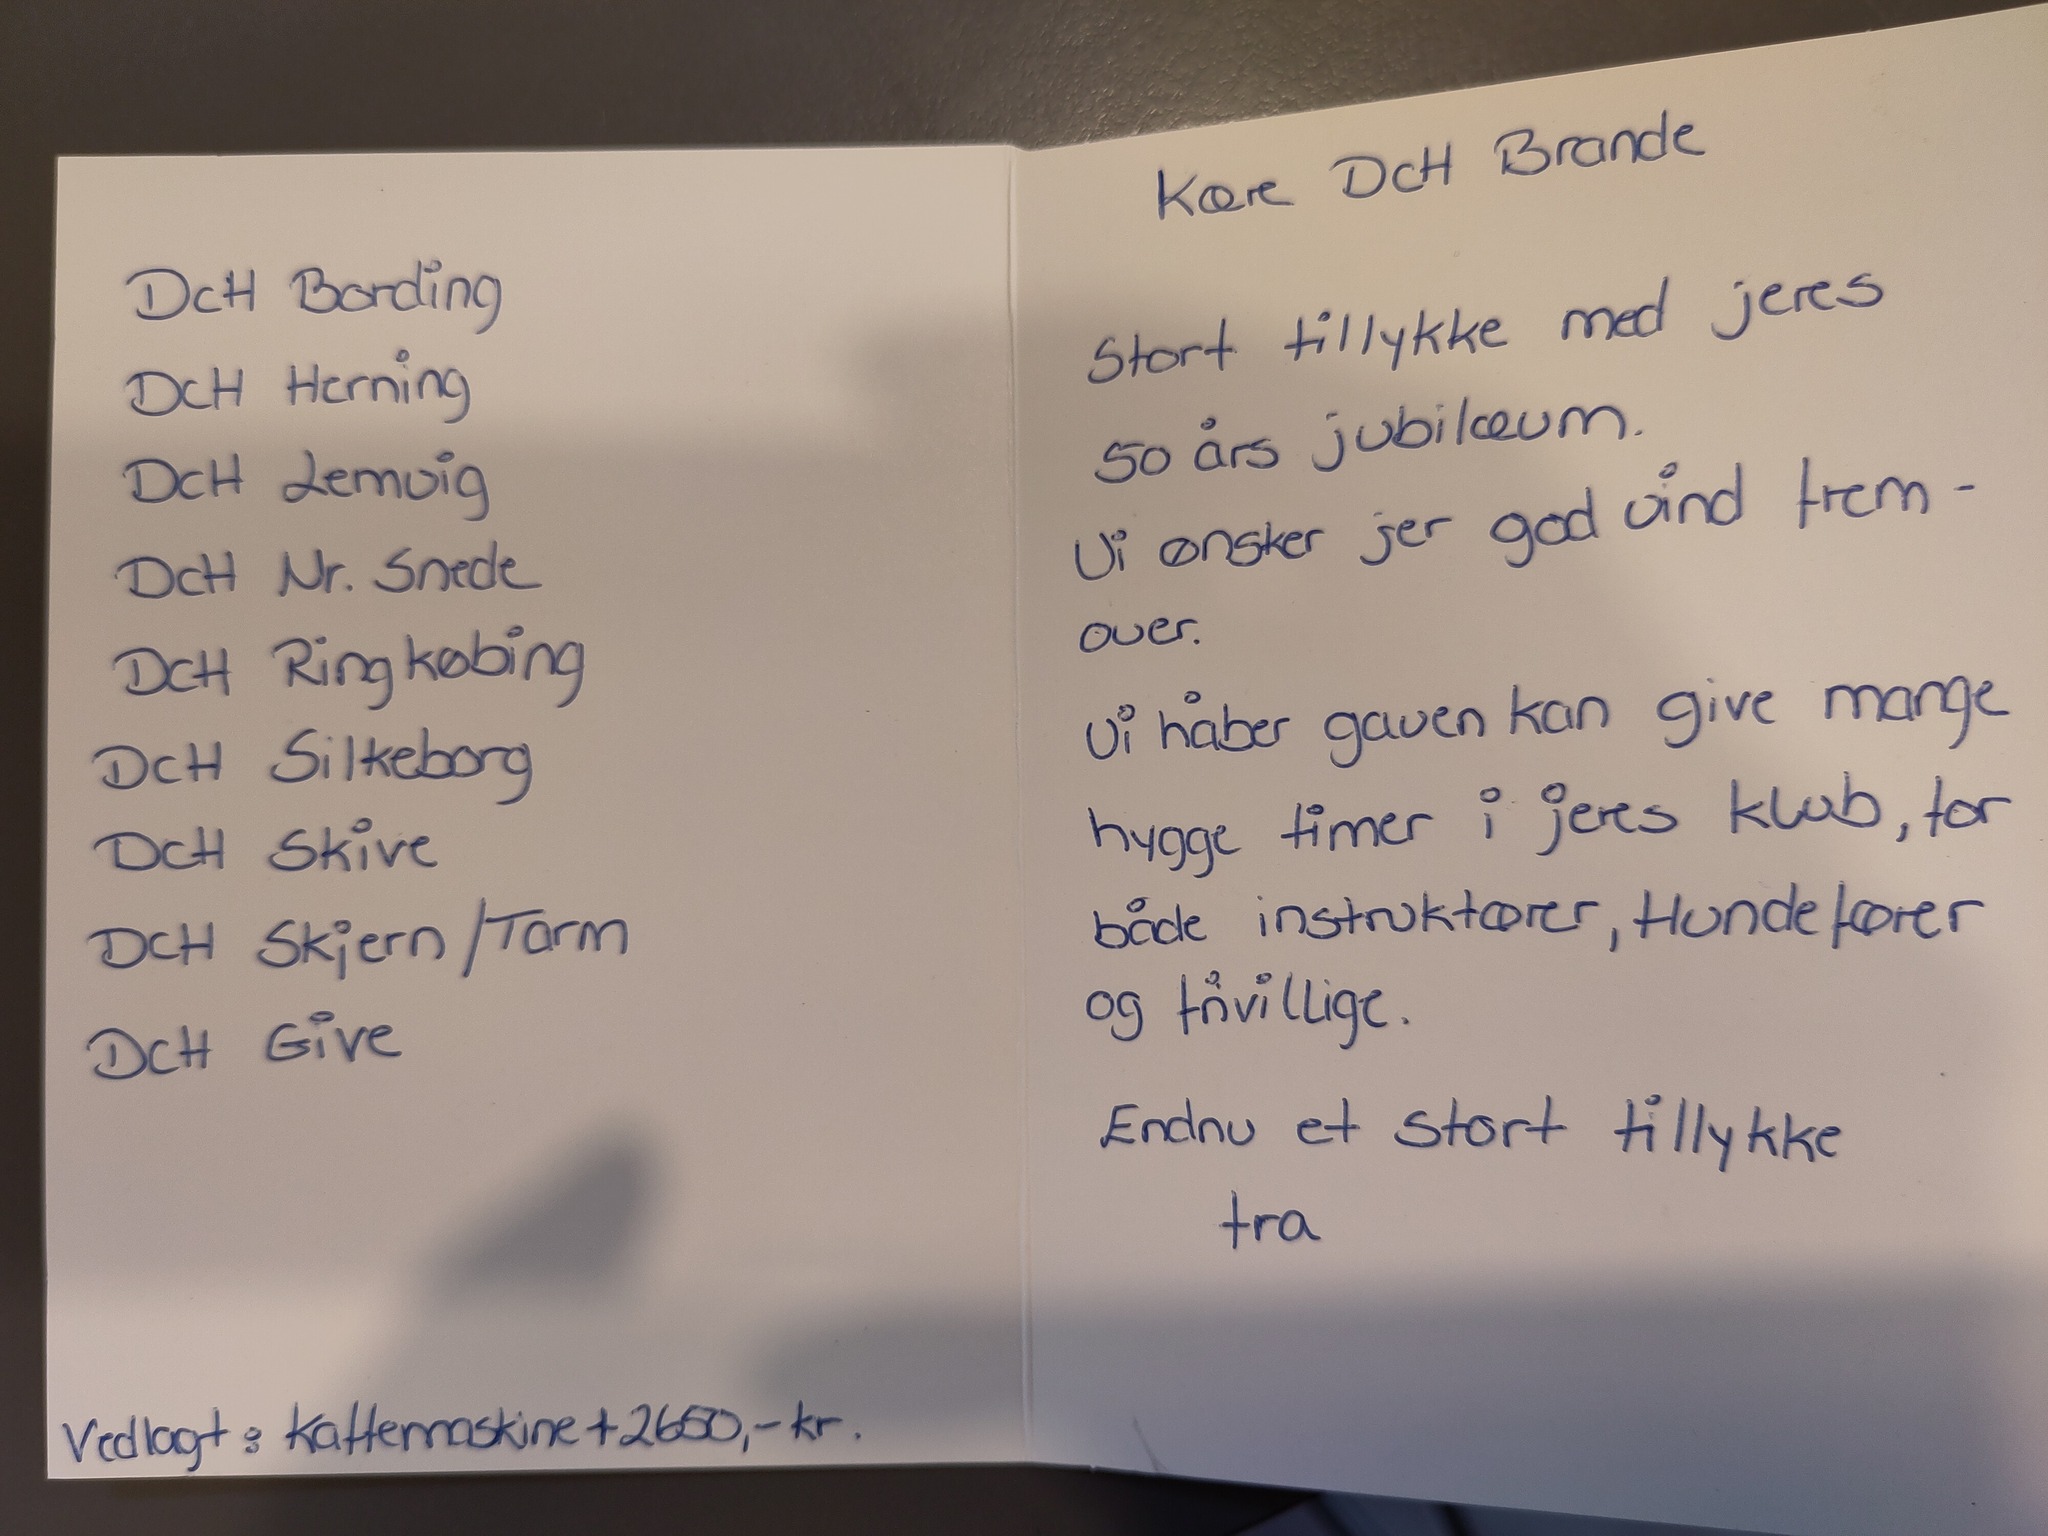 DcH Bording
DcH Herning
DcH Lemvig
DcH Nr. Snede
DcH Ringkøbing
DcH Silkeborg
DcH Skive
DcH Skjern/Tarm
DcH Give
Vedlagt: Kaffemaskine + 2650,- kr.
Kære DcH Brande
Stort tillykke med jeres
50 års jubilæum.
Vi ønsker jer god vind frem-
over.
Vi håber gaven kan give mange
hygge timer i jeres klub, for
både instruktører, Hundefører
og frivillige.
Endnu et stort tillykke
fra